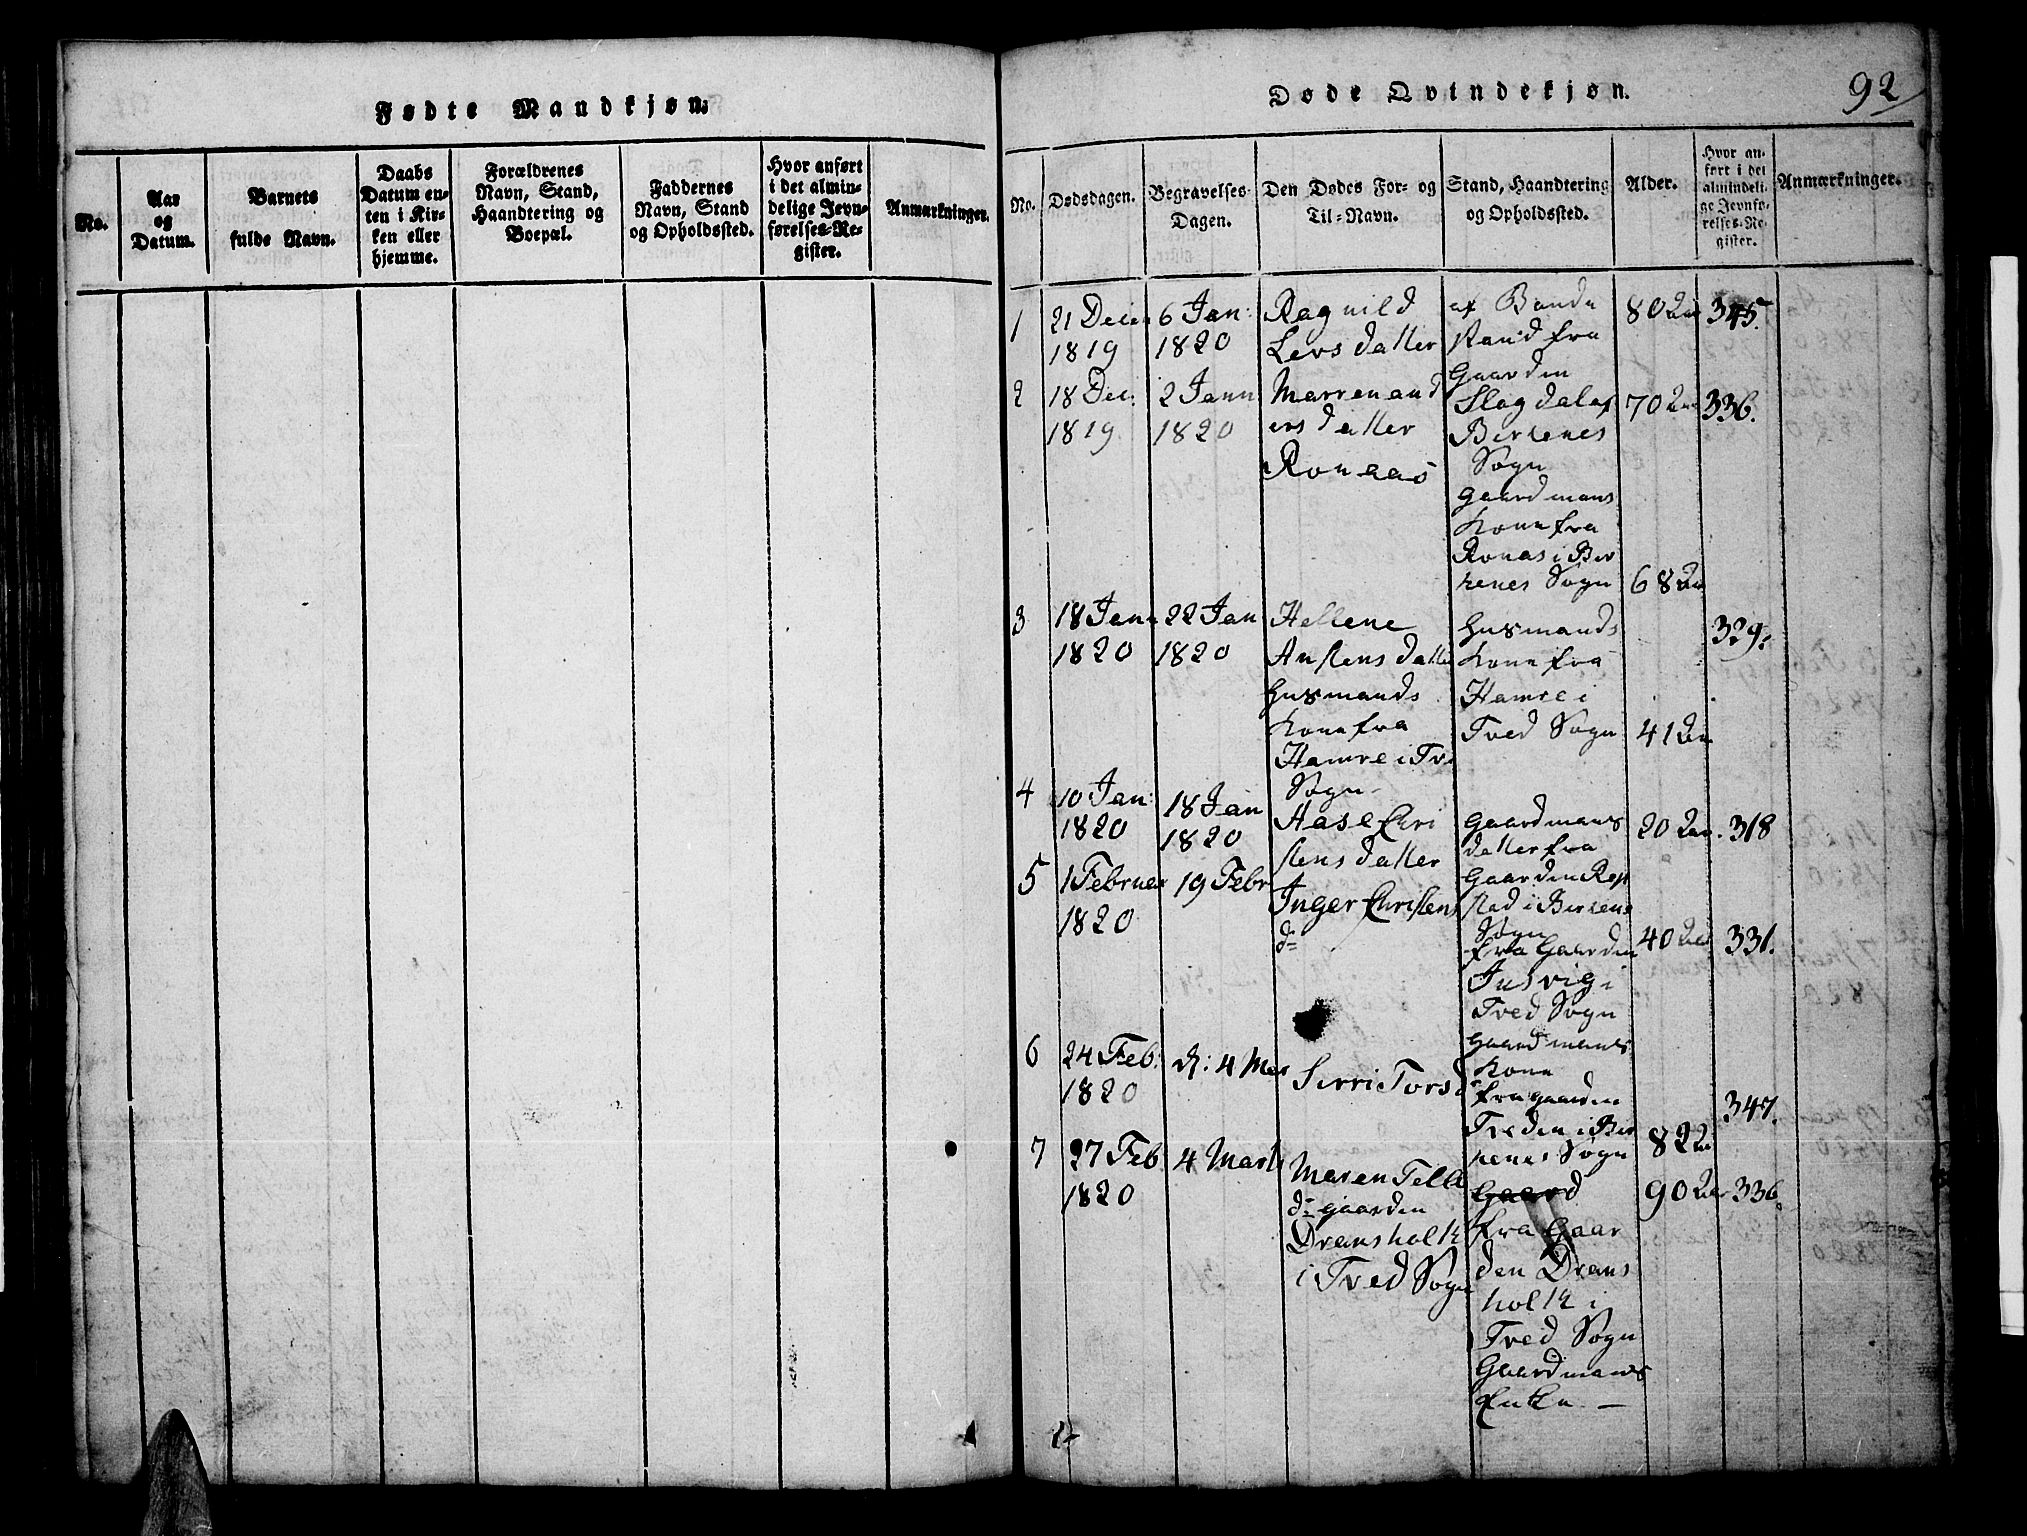 Fødte Mandkjøn.
No.
Aar
og
Datum.
Barnets
fulde Navn.
Daabs
Datum en-
ten i Kir-
ken eller
hjemme.
Forældrenes
Navn, Stand,
Haandtering og
Boepæl.
Faddernes
Navn, Stand
og Opholdssted.
Hvor anført
i det almin-
delige Jevn-
førelses-Re-
gister.
Anmærkninger.
Døde Qvindekjøn.
92
No.
Dødsdagen.
Begravelses-
Dagen.
Den Dødes For- og
Til-Navn.
Stand, Haandtering
og Opholdssted.
Alder.
Hvor an-
ført i det
almindeli-
ge Jevnfø-
relses-Re-
gister.
Anmærkninger.
1
21 Decem
1819
6 Jan:
1820
Ragnild
Lersdatter
af Bonde
stand fra
Gaarden
Slogdal af
Berkenes
Sogn
80
345.
2
18 Dec:
1819
2 Jann
1820
Marren and
ersdatter
Ronaas
gaardmans
kone fra
Ronas i Ber
kenes Sogn
70
336.
68
3
18 Jann
1820
22 Jan
1820
Hellene
Anstensdatte
husmands
kone fra
Hamre i Tve
Sogn
husmands
kone fra
Hamre i
Tved Sogn
41
329.
4
10 Jan:
1820
18 Jan
1820
Aase Chri
stensdatter
gaardmans
datter fra
Gaarden Rep
stad i Berkene
Sogn
20
318
5
1 Februer
1820
19 Febr
Inger Christens
d=
fra Gaarden
Justvig i
Tved Sogn
gaardmans
kone
40
331.
6
24 Feb:
1820
d: 4 Mar
Sirri Torsd
fra gaarden
Tveden i Ber
kenes Sogn
82
347.
7
27 Feb
1820
4 Marts
Maren Telle
d= gaarden
Dransholt
i Tved Sogn
Gaard
fra Gaar
den Drans
holt i
Tved Sogn
Gaardmans
Enke. —
90
336.